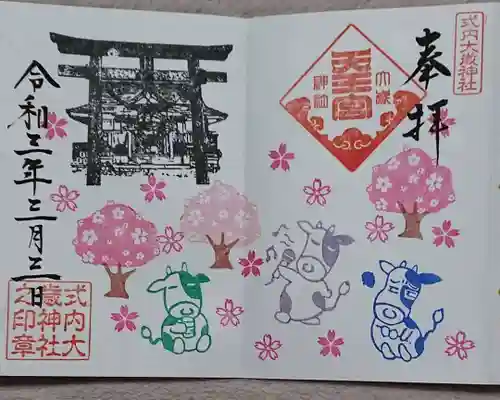 式内大歳神社
奉拝
天王宮
大歳
神社
令和三年三月三日
式内大
歳神社
之印章